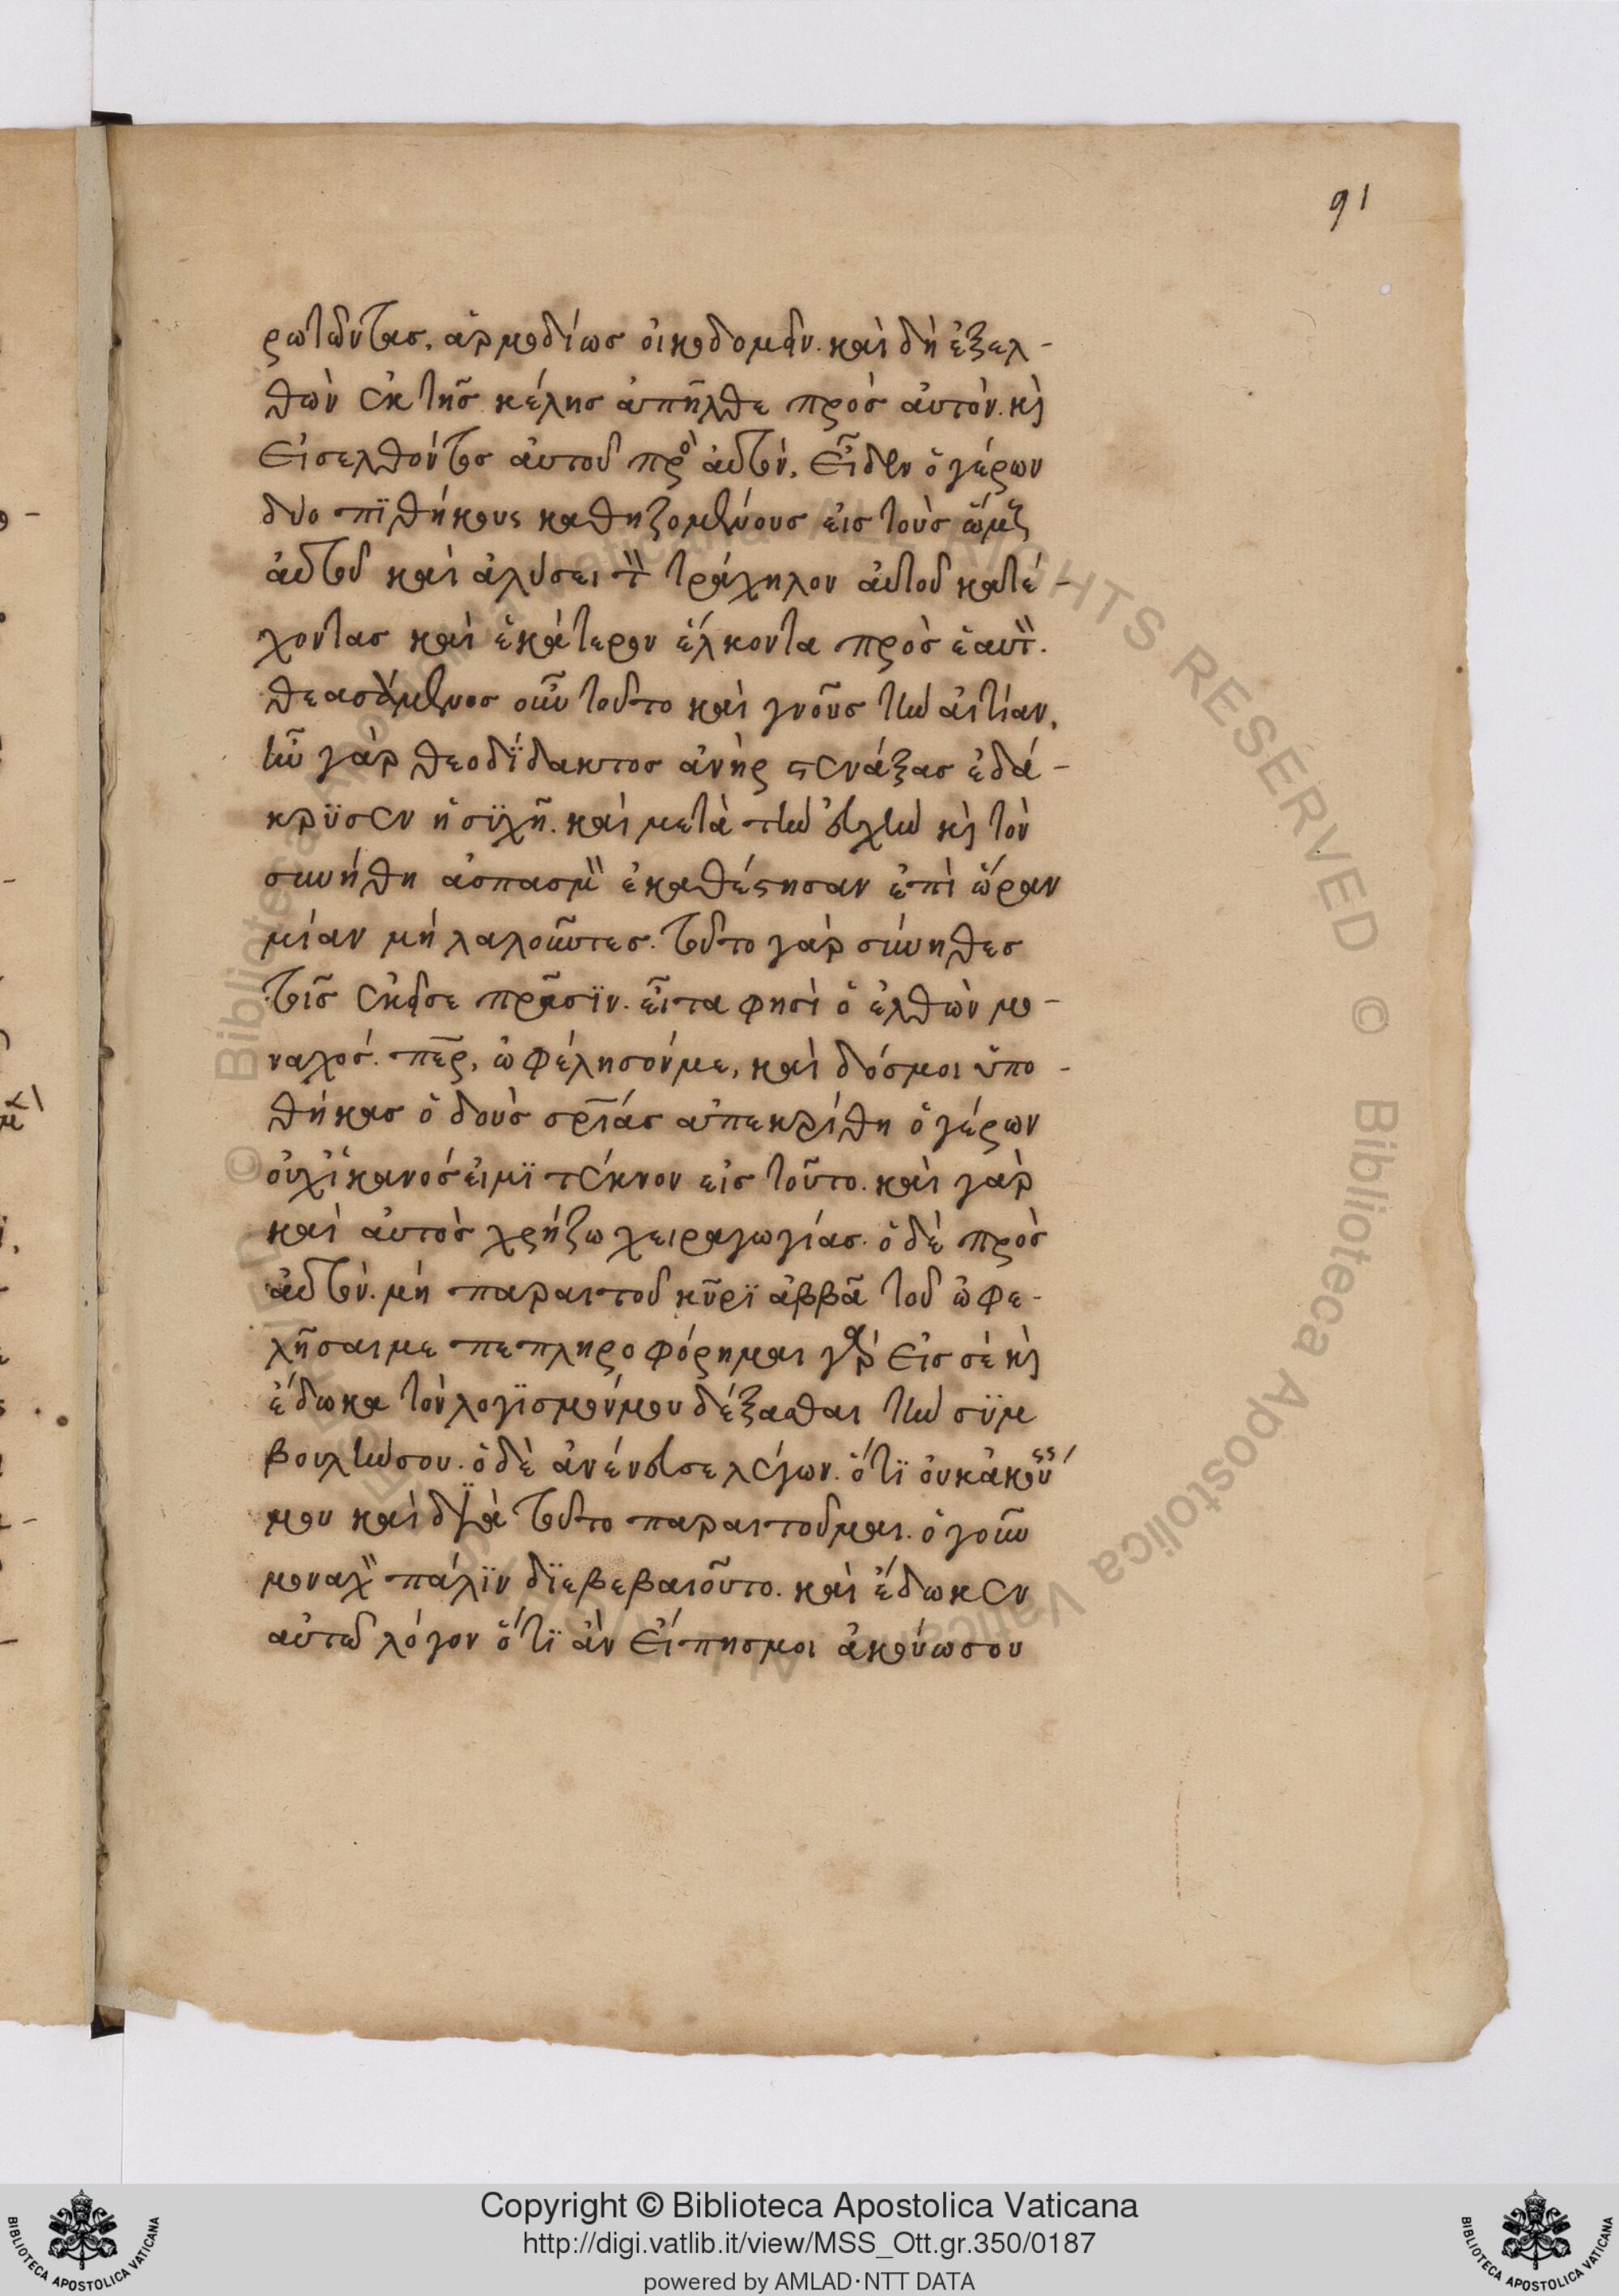 91
ρωτῶντας. ἁρμοδίως οἰκοδομεῖν. καὶ δὴ ἐξελ-
θὼν ἐκ τῆς κέλης ἀπῆλθε πρὸς αὐτόν. κὶ
εἰσελθόντος αὐτοῦ πρὸ αὐτόν. εἶδεν ὁ γέρων
δύο πϊθήκους καθηζομένους εἰς τοὺς ὤμς
αὐτοῦ καὶ ἀλύσει τὸ τράχηλον αὐτοῦ κατέ-
χοντας καὶ ἑκάτερον ἕλκοντα πρὸς ἑαυτ.
θεασάμενος οὖν τοῦτο καὶ γνοῦς τὴν αἰτίαν.
ἦν γὰρ θεοδΐδακτος ἀνὴρ στενάξας ἐδά-
κρϋσεν ἡσϋχῆ. καὶ μετὰ τὴν εὐχὴν κὶ τὸν
συνήθη ἀσπασμ ἐκαθέστησαν ἐπὶ ὥραν
μίαν μὴ λαλοῦντες. τοῦτο γὰρ σύνηθες
τοῖς ἐκεῖσε πρᾶσϊν. εἶτα φησὶ ὁ ἐλθὼν μο-
ναχός. περ, ὠφέλησόν με, καὶ δόσμοι ὑπο-
θήκας ὁδοὺς σριάς ἀπεκρίθη ὁ γέρων
οὐχ ἱκανός εἰμϊ τέκνον εἰς τοῦτο. καὶ γὰρ
καὶ αὐτὸς χρήζω χειραγωγίας. ὁ δὲ πρὸς
αὐτόν. μὴ παραιτοῦ κῦρϊ ἀββᾶ τοῦ ὠφε-
λῆσαι με πεπληροφόρημαι γὰρ εἰς σὲ κὶ
ἔδωκα τὸν λογϊσμόν μου δέξασθαι τὴν σϋμ
βουλήν σου. ὁ δὲ ἀνένευσε λέγων. ὅτϊ οὐκ ἀκούεις
μου καὶ δϊὰ τοῦτο παραιτοῦμαι. ὁ γοῦν
μοναχ πάλϊν δϊεβεβαιοῦτο. καὶ ἔδωκεν
αὐτῶ λόγον ὅτϊ ἂν εἴπης μοι ἀκούω σου
Copyright © Biblioteca Apostolica Vaticana
http://digi.vatlib.it/view/MSS_Ott.gr.350/0187
powered by AMLAD·NTT DATA
BIBLIOTECA APOSTOLICA VATICANA
BIBLIOTECA APOSTOLICA VATICANA